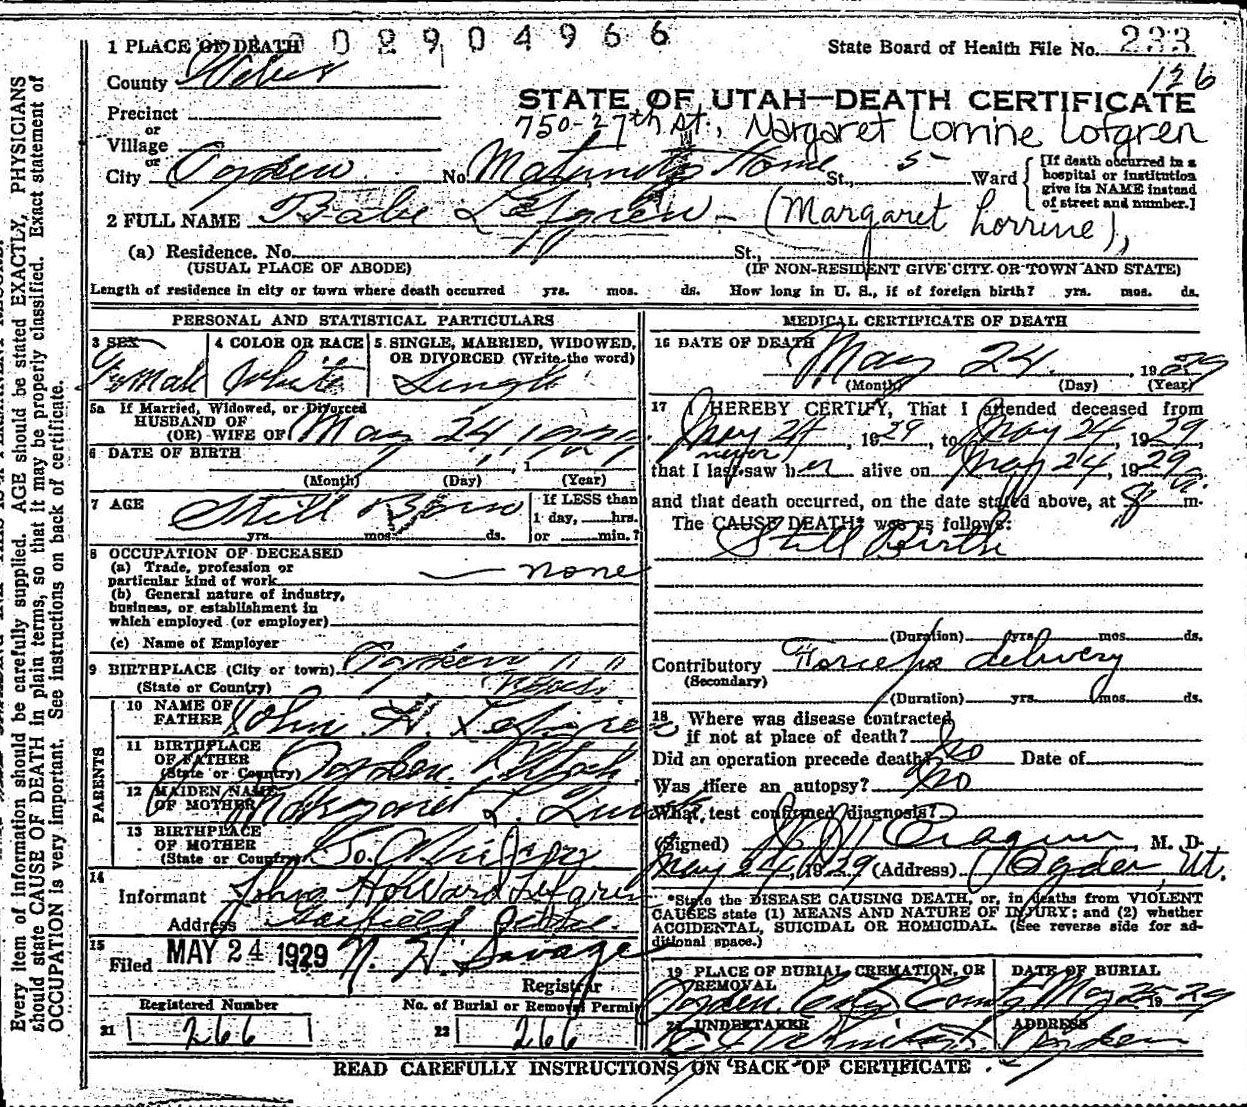 1 PLACE OF DEATH 002904966
State Board of Health File No. 233
126
County Weber
STATE OF UTAH—DEATH CERTIFICATE
Precinct
or
Village
750-27th St., Margaret Lorrine Lofgren
or
City Ogden No. Maternity Home St., 5 Ward
[If death occurred in a
hospital or institution
give its NAME instead
of street and number.]
2 FULL NAME Babe Lofgren - (Margaret Lorrine),
(a) Residence. No. St.,
(USUAL PLACE OF ABODE) (IF NON-RESIDENT GIVE CITY OR TOWN AND STATE)
Length of residence in city or town where death occurred yrs. mos. ds. How long in U. S., if of foreign birth? yrs. mos. ds.
PERSONAL AND STATISTICAL PARTICULARS
3 SEX
Female
4 COLOR OR RACE
White
5 SINGLE, MARRIED, WIDOWED,
OR DIVORCED (Write the word)
Single
5a If Married, Widowed, or Divorced
HUSBAND OF
(OR) WIFE OF
6 DATE OF BIRTH May 24, 1929
(Month) (Day) (Year)
7 AGE Still Born
yrs. mos. ds.
If LESS than
1 day, hrs.
or min.?
8 OCCUPATION OF DECEASED
(a) Trade, profession or
particular kind of work none
(b) General nature of industry,
business, or establishment in
which employed (or employer)
(c) Name of Employer
9 BIRTHPLACE (City or town) Ogden
(State or Country) Utah
PARENTS
10 NAME OF
FATHER John H. Lofgren
11 BIRTHPLACE
OF FATHER
(State or Country) Ogden Utah
12 MAIDEN NAME
OF MOTHER Margaret L.
13 BIRTHPLACE
OF MOTHER
(State or Country) So.
14
Informant John Howard Lofgren
Address
15
Filed MAY 24 1929 N. H. Savage
Registrar
Registered Number
21 266
No. of Burial or Removal Permit
22 266
MEDICAL CERTIFICATE OF DEATH
16 DATE OF DEATH May 24, 1929
(Month) (Day) (Year)
17 I HEREBY CERTIFY, That I attended deceased from
May 24, 1929, to May 24, 1929,
never
that I last saw her alive on May 24, 1929
and that death occurred, on the date stated above, at 8 a. m.
The CAUSE DEATH* was as follows:
Still Birth
(Duration) yrs. mos. ds.
Contributory Forceps delivery
(Secondary)
(Duration) yrs. mos. ds.
18 Where was disease contracted
if not at place of death?
Did an operation precede death? No Date of
Was there an autopsy? No
What test confirmed diagnosis?
(Signed) Cragun, M. D.
May 24, 1929 (Address) Ogden, Ut.
*State the DISEASE CAUSING DEATH, or, in deaths from VIOLENT
CAUSES state (1) MEANS AND NATURE OF INJURY; and (2) whether
ACCIDENTAL, SUICIDAL OR HOMICIDAL. (See reverse side for ad-
ditional space.)
19 PLACE OF BURIAL, CREMATION, OR
REMOVAL
Ogden City Cem
DATE OF BURIAL
May 25 1929
20 UNDERTAKER
ADDRESS
Ogden
READ CAREFULLY INSTRUCTIONS ON BACK OF CERTIFICATE.
Every item of information should be carefully supplied. AGE should be stated EXACTLY, PHYSICIANS
should state CAUSE OF DEATH in plain terms, so that it may be properly classified. Exact statement of
OCCUPATION is very important. See instructions on back of certificate.